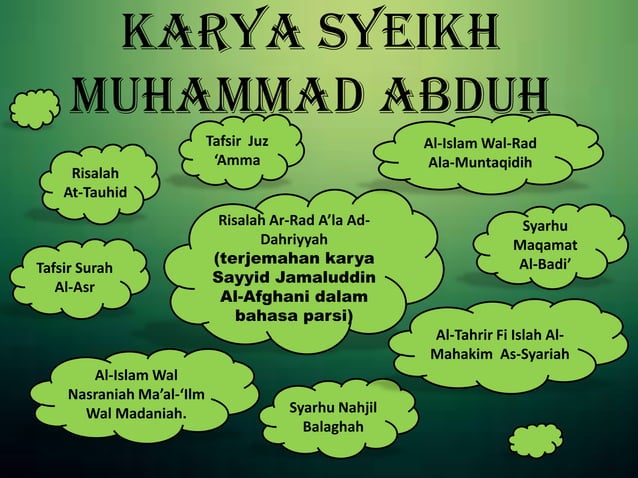 KARYA SYEIKH
MUHAMMAD ABDUH
Tafsir Juz
‘Amma
Al-Islam Wal-Rad
Ala-Muntaqidih
Risalah
At-Tauhid
Risalah Ar-Rad A’la Ad-
Dahriyyah
(terjemahan karya
Sayyid Jamaluddin
Al-Afghani dalam
bahasa parsi)
Syarhu
Maqamat
Al-Badi’
Tafsir Surah
Al-Asr
Al-Tahrir Fi Islah Al-
Mahakim As-Syariah
Al-Islam Wal
Nasraniah Ma’al-‘Ilm
Wal Madaniah.
Syarhu Nahjil
Balaghah